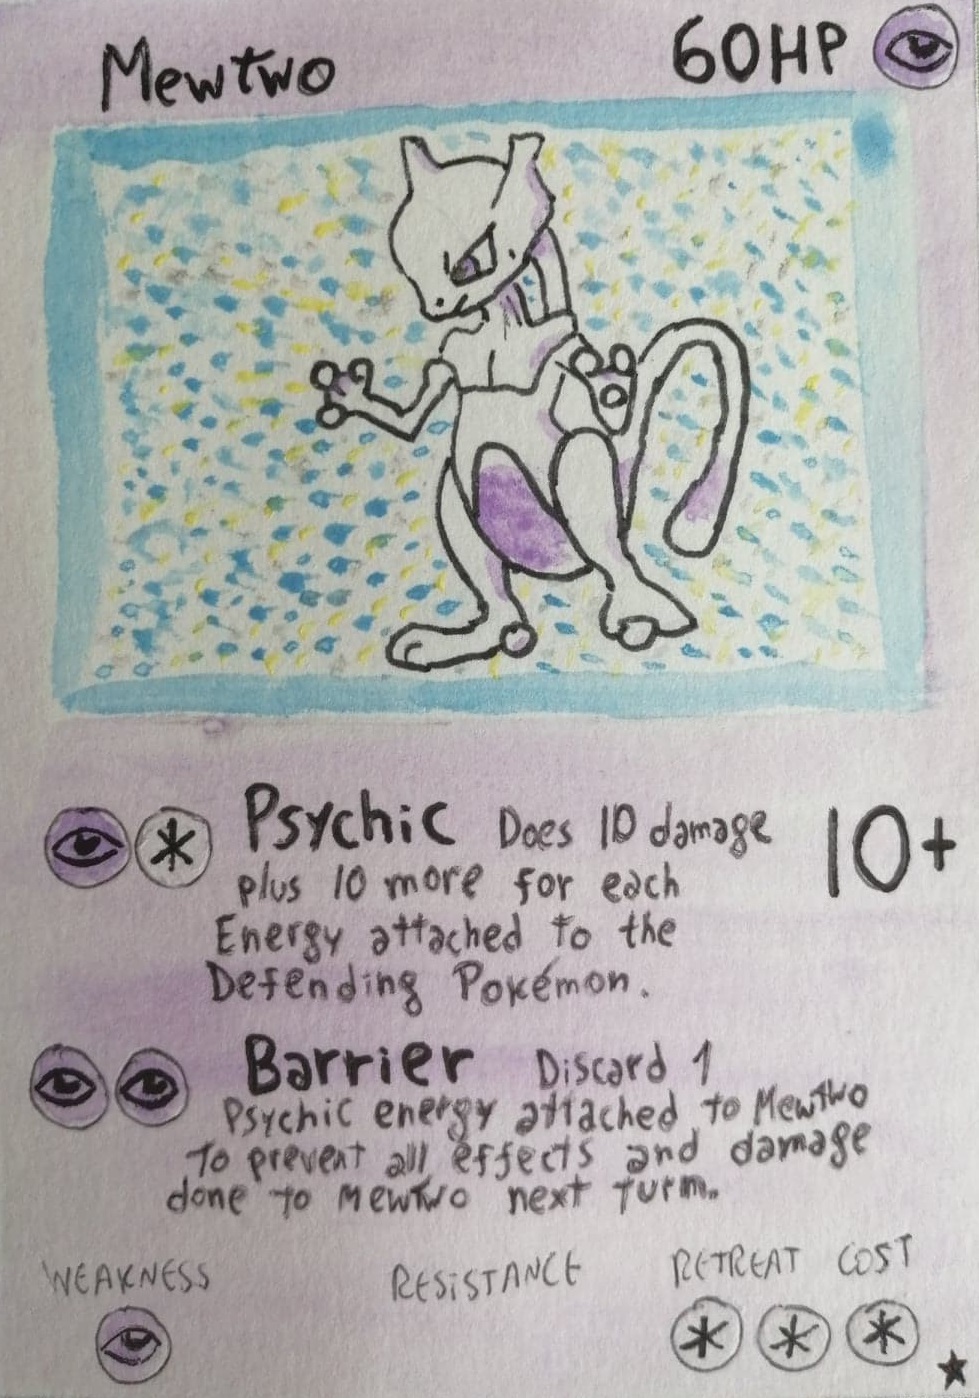 Mewtwo 60HP
Psychic Does 10 damage 10+
plus 10 more for each
Energy attached to the
Defending Pokémon.
Barrier Discard 1
Psychic energy attached to Mewtwo
to prevent all effects and damage
done to Mewtwo next turm.
WEAKNESS RESISTANCE RETREAT COST